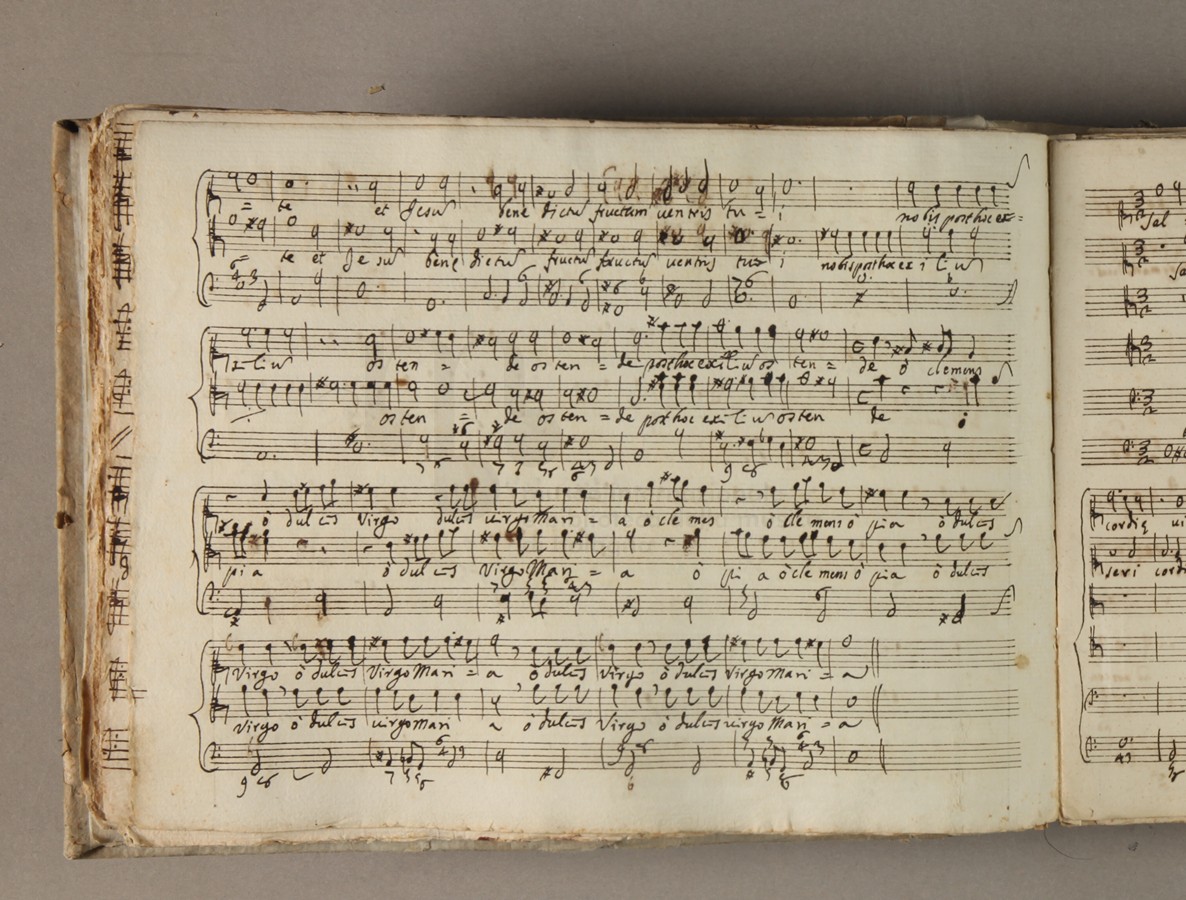 = te et Jesu bene dictu fructum ventris tu = i nobis post hoc ex=
te et Je su bene dictu fructu fructu ventris tu= i nobis post hoc ex i liu
iliu os ten = de os ten = de post hoc exiliu os ten = de ô clemens
os ten = de os ten = de post hoc exiliu os ten de
ô dulcis Virgo dulcis virgo Mari = a ô cle mes ô cle mens ô pia ô dulcis
pi a ô dulcis Virgo Mari = a ô pi a ô cle mens ô pia ô dulcis
Virgo ô dulcis Virgo Mari = a ô dulcis Virgo ô dulcis Virgo Mari = a
Virgo ô dulcis virgo Mari a ô dulcis Virgo ô dulcis virgo Mari = a
Sal
cordię
seri cordi